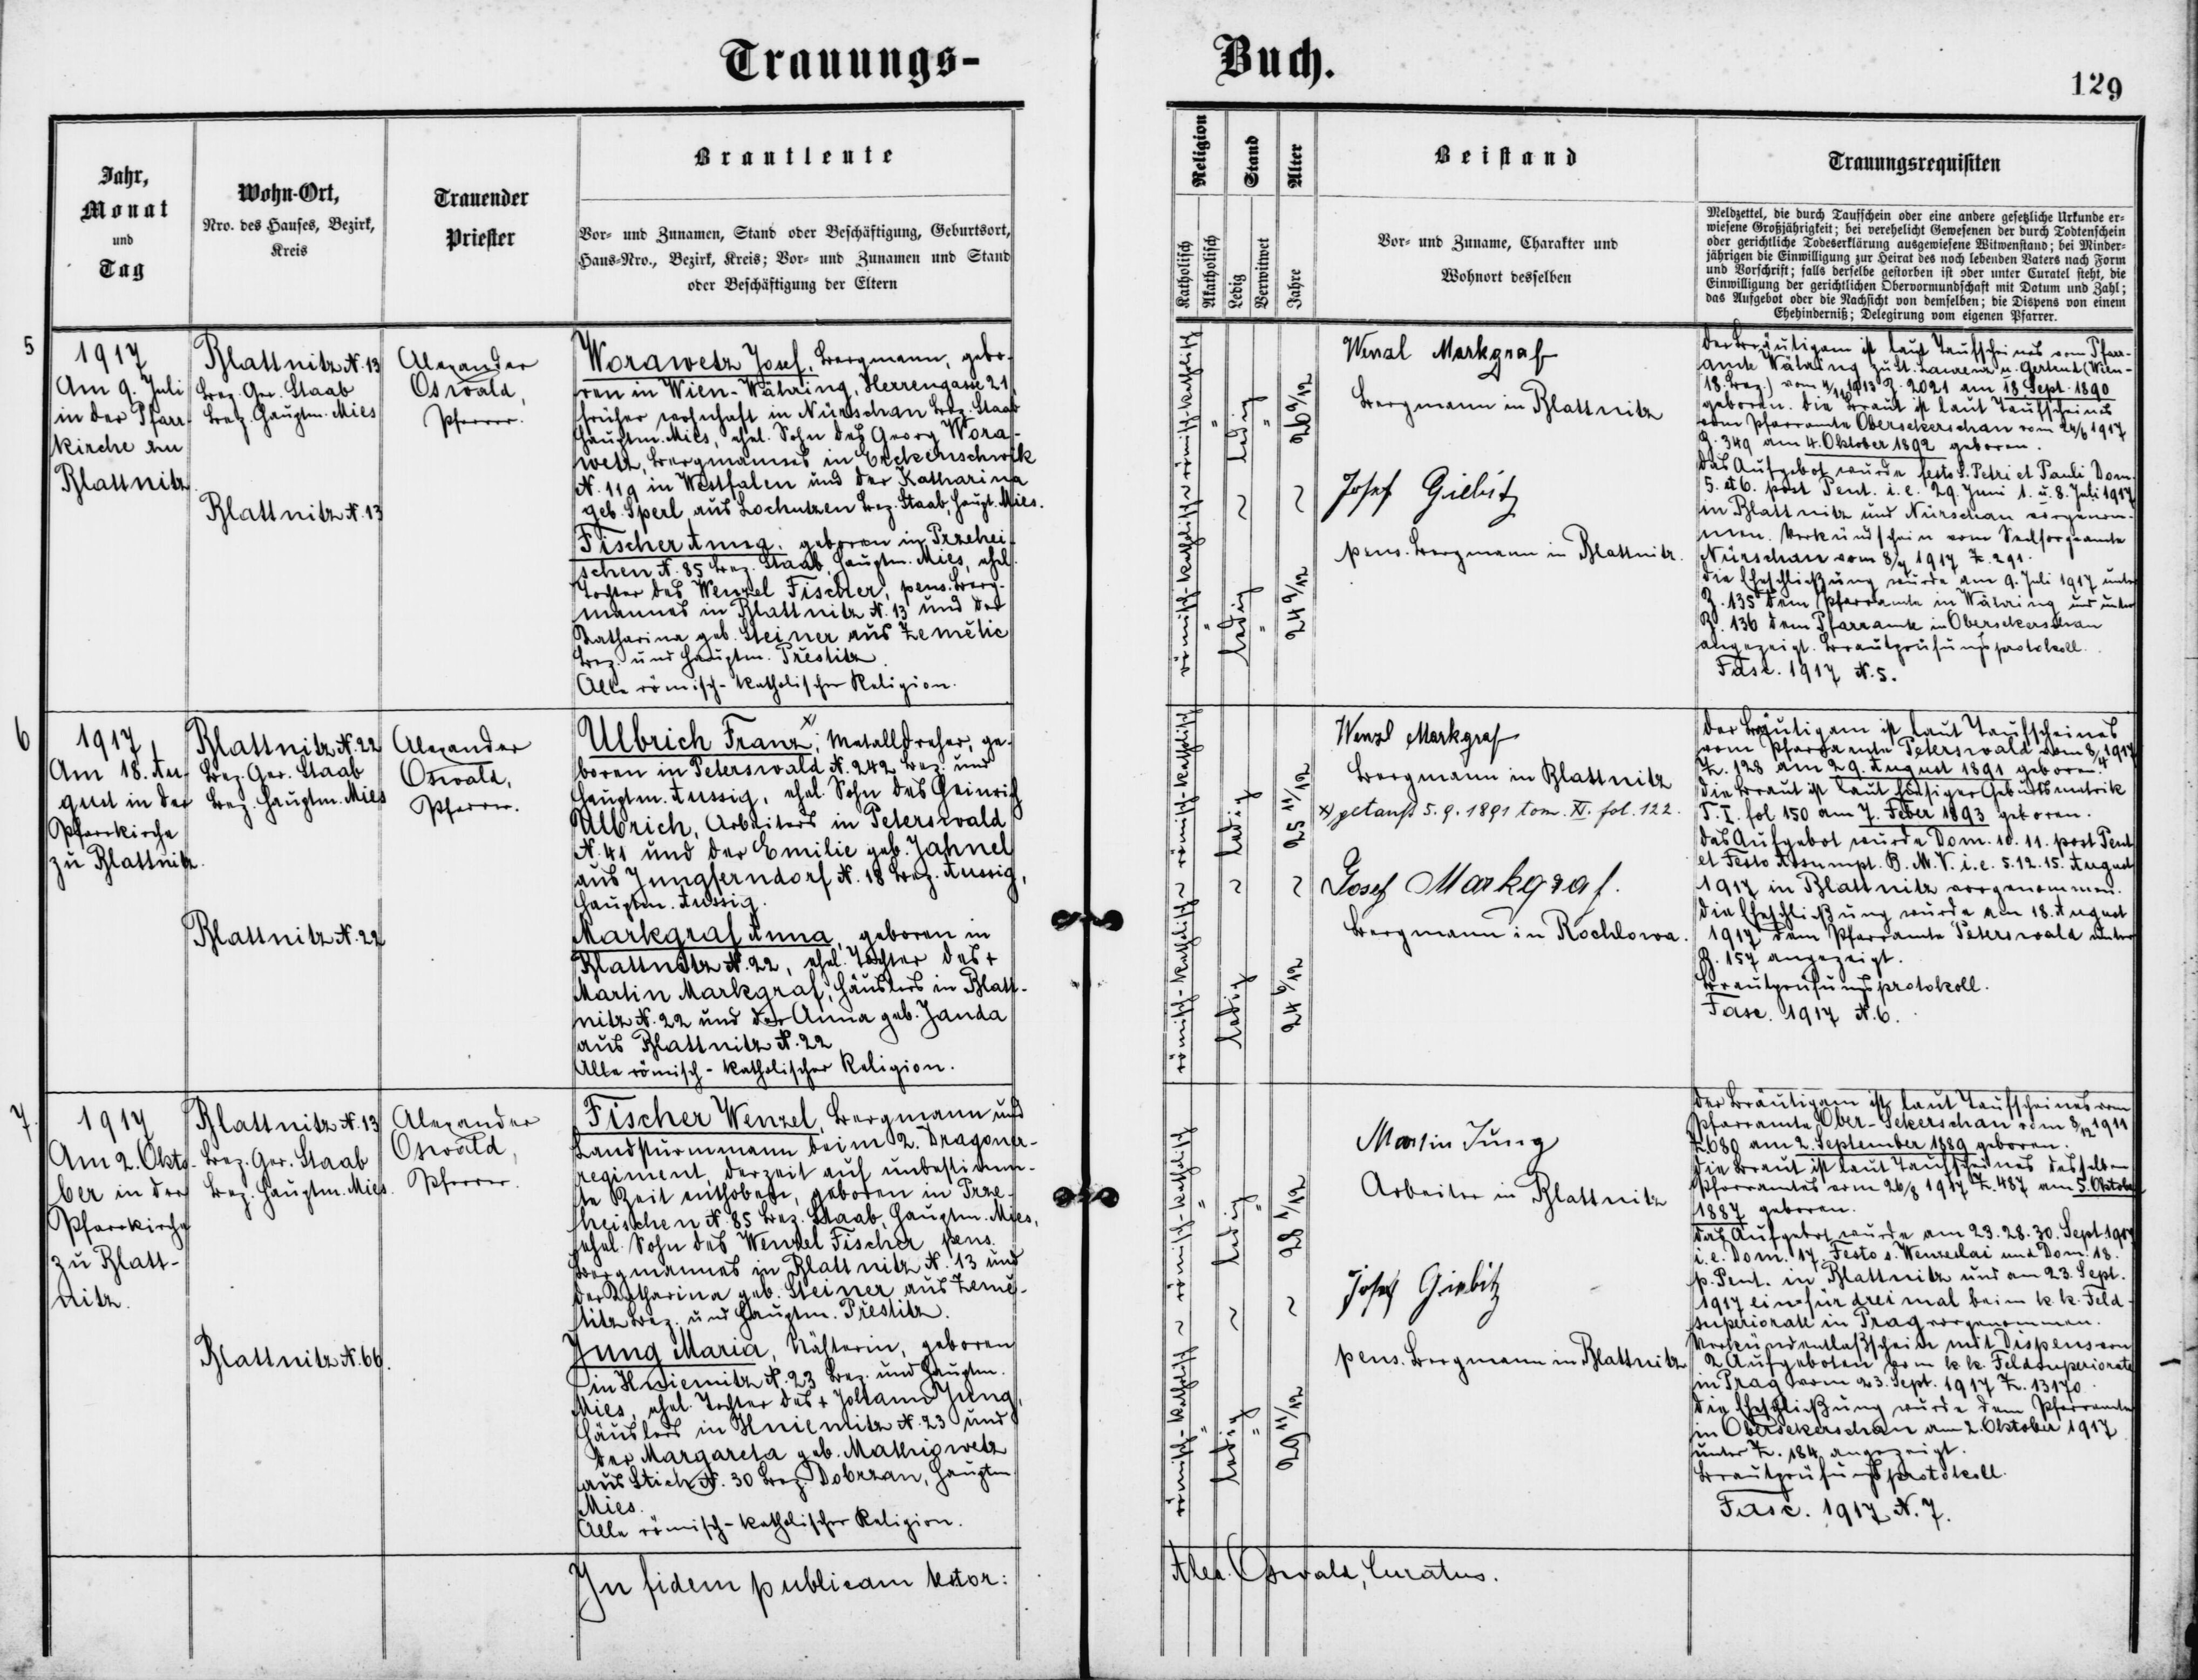 Trauungs-
Buch.
129
Jahr,
Monat
und
Tag
Wohn-Ort,
Nro. des Hauses, Bezirk,
Kreis
Trauender
Priester
Brautleute
Vor- und Zunamen, Stand oder Beschäftigung, Geburtsort,
Haus-Nro., Bezirk, Kreis; Vor- und Zunamen und Stand
oder Beschäftigung der Eltern
Religion
Katholisch
Akatholisch
Stand
Ledig
Verwitwet
Alter
Jahre
Beistand
Vor- und Zuname, Charakter und
Wohnort desselben
Trauungsrequisiten
Meldzettel, die durch Taufschein oder eine andere gesetzliche Urkunde er-
wiesene Großjährigkeit; bei verehelicht Gewesenen der durch Todtenschein
oder gerichtliche Todeserklärung ausgewiesene Witwenstand; bei Minder-
jährigen die Einwilligung zur Heirat des noch lebenden Vaters nach Form
und Vorschrift; falls derselbe gestorben ist oder unter Curatel steht, die
Einwilligung der gerichtlichen Obervormundschaft mit Dotum und Zahl;
das Aufgebot oder die Nachsicht von demselben; die Dispens von einem
Ehehinderniß; Delegirung vom eigenen Pfarrer.
5
1917
Am 9. Juli
in der Pfarr-
kirche zu
Blattnitz
Blattnitz N. 13
Bez. Ger. Staab
Bez. Hauptm. Mies
Blattnitz N. 13
Alexander
Oswald,
Pfarrer.
Worawetz Josef, Bergmann, gebo-
ren in Wien-Währing, Herrengasse 21
früher wohnhaft in Nürschan Bez. Staab
Hauptm. Mies, ehel. Sohn des Georg Wora-
wetz, Bergmannes in Erckenschwik
N. 119 in Westfalen und der Katharina
geb. Sperl aus Lochutzen Bez. Staab, Haupt. Mies.
Fischer Anna, geboren in Przehei-
schen N. 85 Bez. Staab, Hauptm. Mies, ehel.
Tochter des Wenzel Fischer, pens. Berg-
mannes in Blattnitz N. 13 und der
Katharina geb. Steiner aus Zemětic
Bez. und Hauptm. Přestitz.
Alle römisch-katholischer Religion.
römisch-katholisch ~ römisch-katholisch
ledig ~ ledig
26 9/12 ~ 24 9/12
Wenzl Markgraf
Bergmann in Blattnitz
Josef Gielitz
pens. Bergmann in Blattnitz.
Der Bräutigam ist laut Taufscheines vom Pfarr-
amte Währing zu St. Laurenz u. Gertrud (Wien-
18. Bez.) vom 4/11 1913 Z. 2021 am 18. Sept. 1890
geboren. Die Braut ist laut Taufscheines
vom Pfarramte Obersekerschan vom 24/6 1917
Z. 349 am 4. Oktober 1892 geboren.
Das Aufgebot wurde festo S. Petri et Pauli Dom.
5. et 6. post Pent. i. e. 29. Juni 1. u. 8. Juli 1917
in Blattnitz und Nürschan vorgenom-
men. Verkündschein vom Seelsorgeamte
Nürschan vom 8/7 1917 Z. 291.
Die Eheschließung wurde am 9. Juli 1917 unter
Z. 135 dem Pfarramte in Währing und unter
Z. 136 dem Pfarramte in Obersekerschan
angezeigt. Brautprüfungsprotokoll.
Fasc. 1917 N. 5.
6
1917
Am 18. Au-
gust in der
Pfarrkirche
zu Blattnitz.
Blattnitz N. 22
Bez. Ger. Staab
Bez. Hauptm. Mies
Blattnitz N. 22
Alexander
Oswald,
Pfarrer.
Ulbrich Franz x), Metalldreher, ge-
boren in Peterswald N. 242 Bez. und
Hauptm. Aussig, ehel. Sohn des Heinrich
Ulbrich, Arbeiters in Peterswald
N. 41 und der Emilie geb. Jahnel
aus Jungferndorf N. 18 Bez. Aussig,
Hauptm. Aussig.
Markgraf Anna, geboren in
Blattnitz N. 22, ehel. Tochter des +
Martin Markgraf, Häuslers in Blatt-
nitz N. 22 und der Anna geb. Janda
aus Blattnitz N. 22
Alle römisch-katholischer Religion.
römisch-katholisch ~ römisch-katholisch
ledig ~ ledig
25 11/12 ~ 24 6/12
Wenzl Markgraf
Bergmann in Blattnitz
x) getauft 5. 9. 1891 tom. XI. fol. 122.
Josef Markgraf.
Bergmann in Rochlowa.
Der Bräutigam ist laut Taufscheines
vom Pfarramte Peterswald vom 8/4 1917
Z. 128 am 29. August 1891 geboren.
Die Braut ist laut hiesiger Geburtsmatrik
T. I. fol 150 am 7. Feber 1893 geboren.
Das Aufgebot wurde Dom. 10. 11. post Pent.
et Festo Assumpt. B. M. V. i. e. 5. 12. 15. August
1917 in Blattnitz vorgenommen.
Die Eheschließung wurde am 18. August
1917 dem Pfarramte Peterswald unter
Z. 157 angezeigt.
Brautprüfungsprotokoll.
Fasc. 1917 N. 6.
7.
1917
Am 2. Okto-
ber in der
Pfarrkirche
zu Blatt-
nitz.
Blattnitz N. 13
Bez. Ger. Staab
Bez. Hauptm. Mies.
Blattnitz N. 66.
Alexander
Oswald,
Pfarrer.
Fischer Wenzel, Bergmann und
Landsturmmann beim 2. Dragoner-
regiment, derzeit auf unbestimm-
te Zeit enthoben, geboren in Prze-
heischen N. 85 Bez. Staab, Hauptm. Mies,
ehel. Sohn des Wenzel Fischer pens.
Bergmannes in Blattnitz N. 13 und
der Katharina geb. Steiner aus Země-
titz Bez. und Hauptm. Přestitz.
Jung Maria, Nähterin, geboren
in Hniemitz N. 23 Bez. und Hauptm.
Mies, ehel. Tochter des + Johann Jung,
Häuslers in Hniemitz N. 23 und
der Margareta geb. Mathiowetz
aus Stich N. 30 Bez. Dobrzan, Hauptm
Mies.
Alle römisch-katholischer Religion.
römisch-katholisch ~ römisch-katholisch
ledig ~ ledig
28 1/12 ~ 29 11/12
Martin Jung
Arbeiter in Blattnitz
Josef Gielitz
pens. Bergmann in Blattnitz
Der Bräutigam ist laut Taufscheines vom
Pfarramte Ober-Sekerschan vom 8/12 1911
Z. 680 am 2. September 1889 geboren.
Die Braut ist laut Taufscheines desselben
Pfarramtes vom 26/8 1917 Z. 487 am 5. Oktober
1887 geboren.
Das Aufgebot wurde am 23. 28. 30. Sept. 1917
i. e. Dom. 17, Festo s. Wenzeslai und Dom. 18.
p. Pent. in Blattnitz und am 23. Sept.
1917 ein für drei mal beim k. k. Feld-
superiorate in Prag vorgenommen.
Verkündentlaßschein mit Dispens von
2 Aufgeboten vom k. k. Feldsuperiorate
in Prag vom 23. Sept. 1917 Z. 13170.
Die Eheschließung wurde dem Pfarramte
in Obersekerschan am 2. Oktober 1917
unter Z. 184 angezeigt.
Brautprüfungsprotokoll.
Fasc. 1917 N. 7.
In fidem publicam testor:
Alex. Oswald, Curatus.